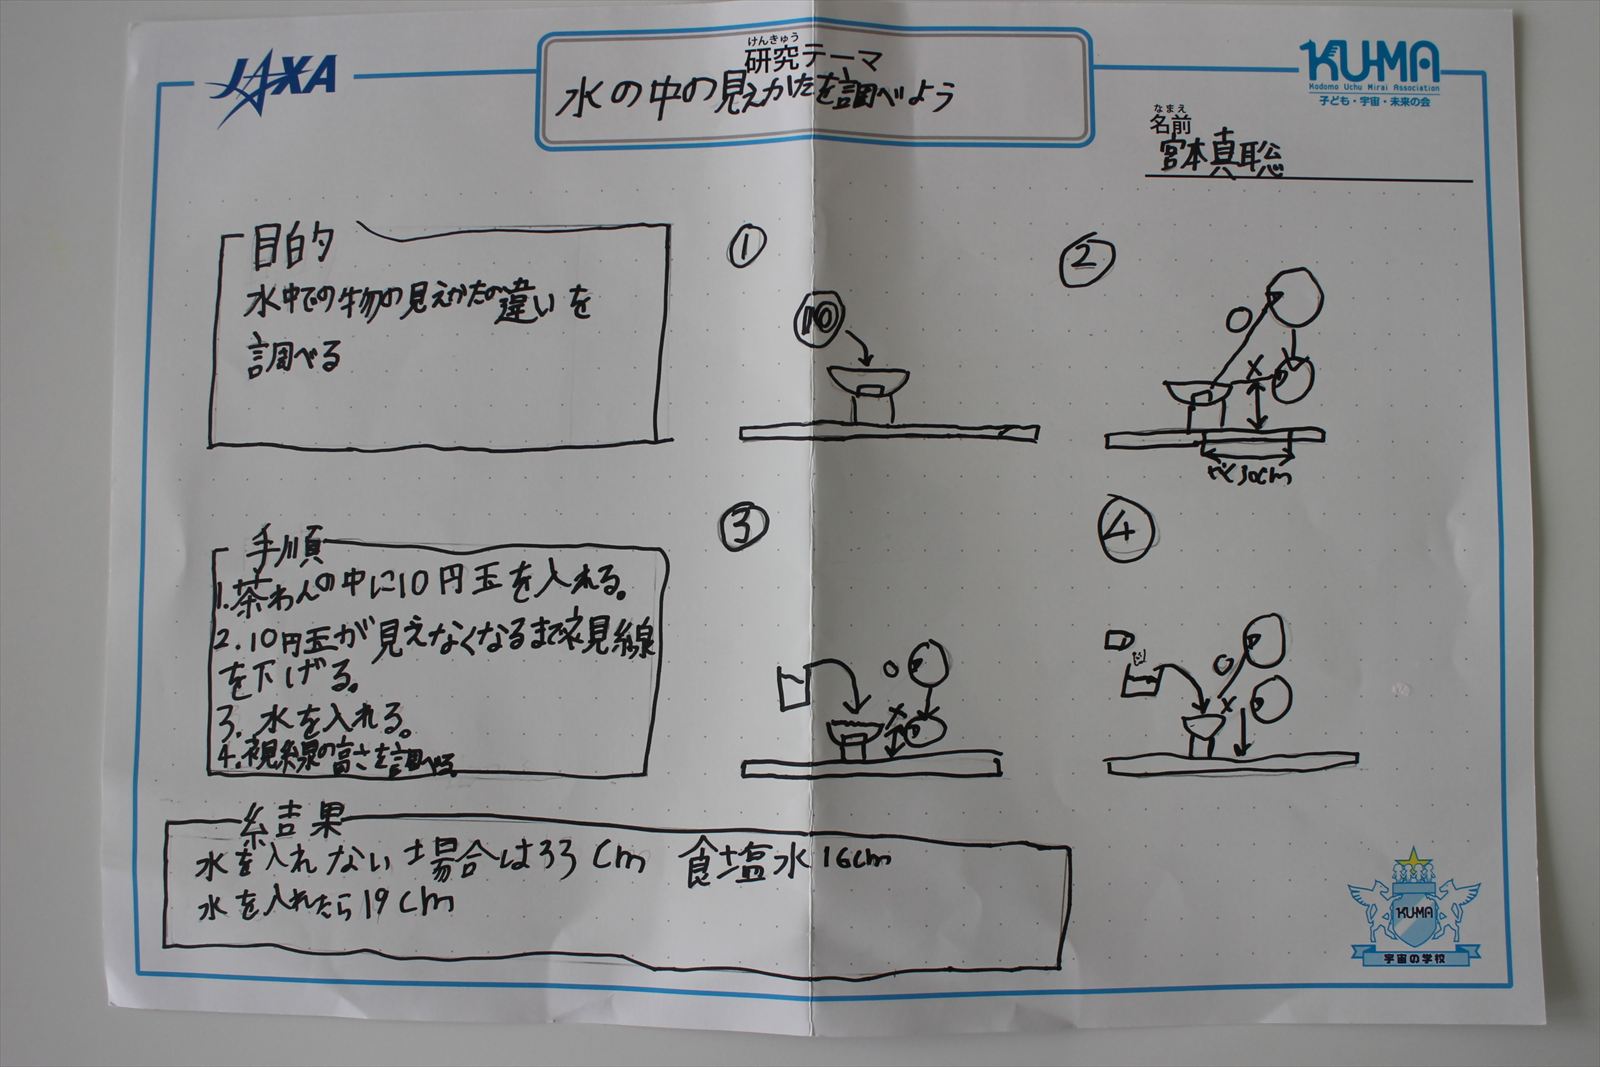 JAXA
けんきゅう
研究テーマ
水の中の見えかたを調べよう
KU-MA
Kodomo Uchu Mirai Association
子ども・宇宙・未来の会
なまえ
名前
宮本真聡
目的
水中での物の見えかたの違いを
調べる
①
10
②
×
30cm
手順
1.茶わんの中に10円玉を入れる。
2.10円玉が見えなくなるまで視線
を下げる。
3.水を入れる。
4.視線の高さを調べる
③
×
④
×
結果
水を入れない場合は33cm 食塩水16cm
水を入れたら19cm
KU-MA
宇宙の学校